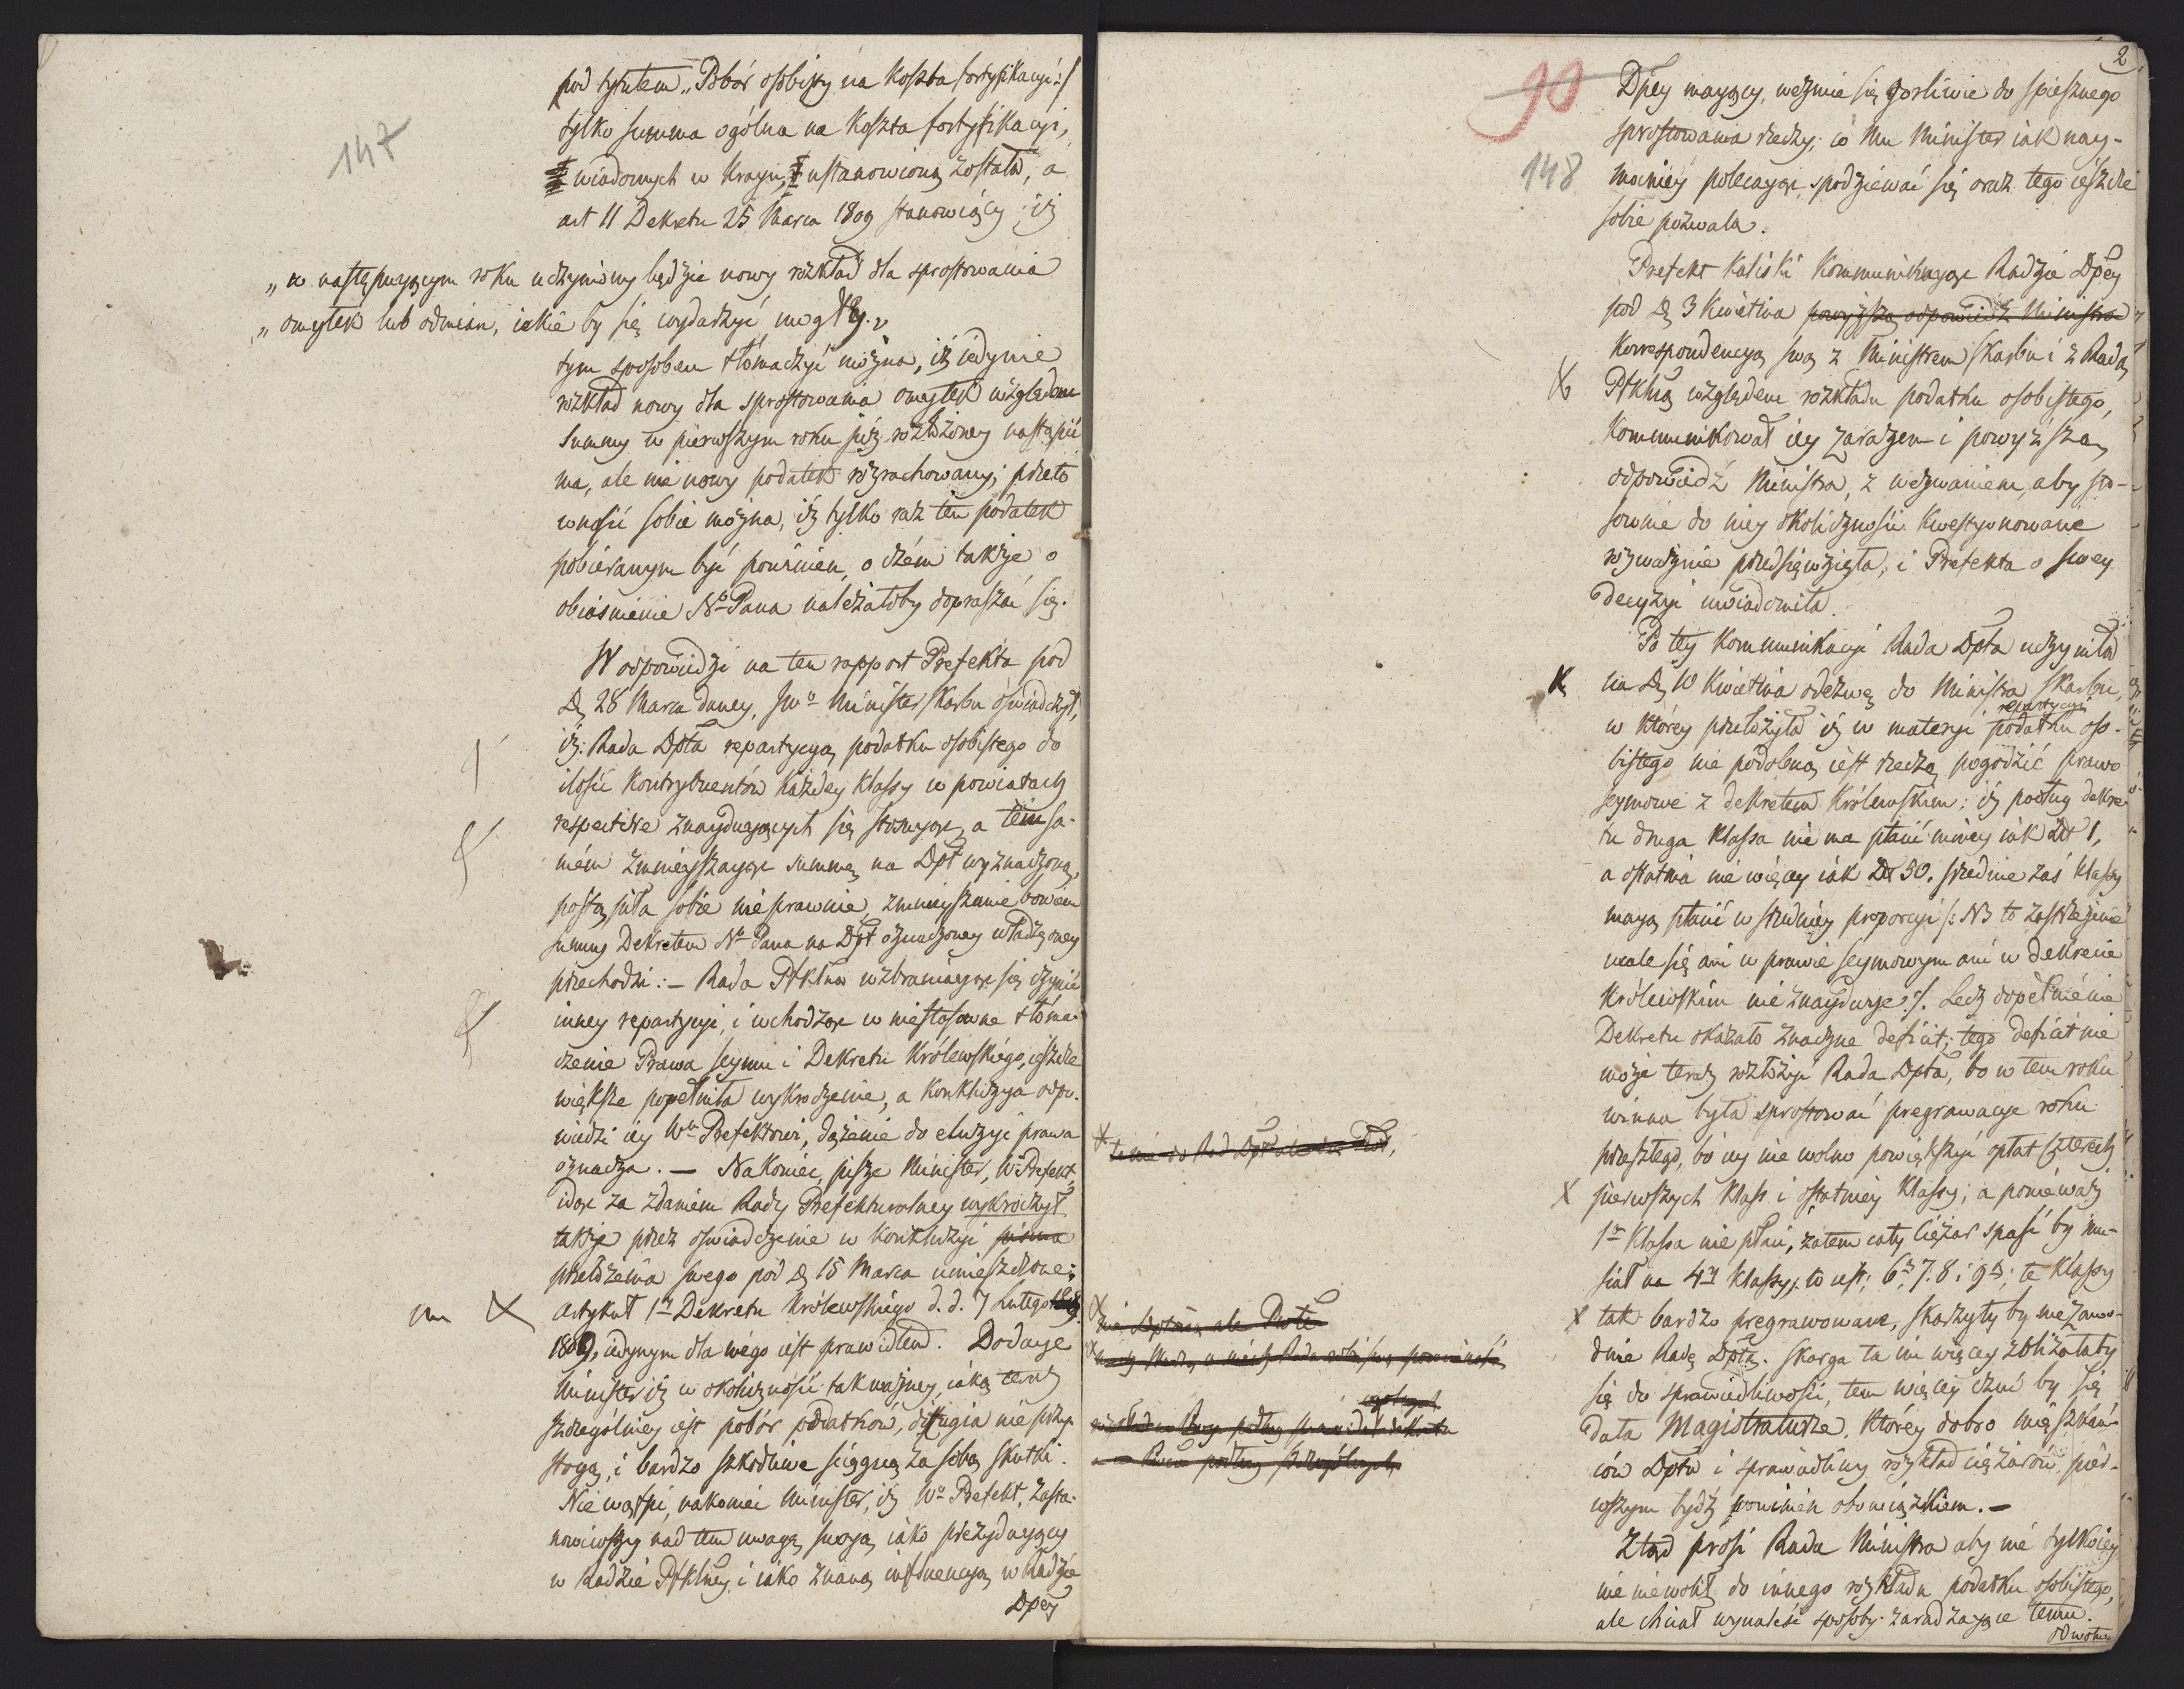 147
pod tytułem „Pobór osobisty na Koszta fortyfikacyi:/
tylko summa ogólna na Koszta fortyfikacyi,
wiadomych w Kraju, ustanowioną została, a
art 11 Dekretu 25 Marca 1809 stanowiący; iż
„w następuiącym roku uczyniony będzie nowy rozkład dla sprostowania
„omyłek lub odmian, iakie by się wydarzyć mogły.„
tym sposobem tłómaczyć można, iż iedynie
rozkład nowy dla sprostowania omyłek względem
Summy w pierwszym roku już rozłożoney nastąpić
ma, ale nie nowy podatek rozrachowany; przeto
wnosić sobie można, iż tylko raz ten podatek
pobieranym być powinien, o czém także o
obiaśnienie No Pana należałoby dopraszać się.
W odpowiedzi na ten rapport Prefekta pod
D. 28 Marca daney, Minister Skarbu oświadczył,
iż: Rada Dpta repartycyą podatku osobistego do
ilość Kontrybuentów każdey Klassy w powiatach
respective znayduiących się stosuiąc, a tém sa-
mém zmnieyszaiąc summę na Dpt wyznaczoną,
postąpiła sobie nieprawnie, zmnieyszenie bowiem
summy Dekretem No Pana na Dpt oznaczoney władzę oney
przechodzi: – Rada Pfktna wzbraniaiąc się czynić
inney repartycyi, i wchodząc w niestosowne tłóma-
czenie Prawa Seymu i Dekretu Królewskiego, ieszcze
większe popełniła wykroczenie, a Konkluzya odpo-
wiedzi iey Wu Prefektowi, dążenie do eluzyi prawa
oznacza. – Nakoniec, pisze Minister, W Prefekt,
idąc za zdaniem Rady Prefekturalney wykroczył
także przez oświadczenie w Konkluzyi
przełożenia swego pod D. 15 Marca umieszczone:
Artykuł 1y Dekretu Królewskiego d. d. 7 Lutego
1809, iedynym dla niego iest prawidłem. Dodaie
Minister iż w okoliczności tak ważney, iaką teraz
szczególniey iest pobór podatków, effugia nie przy-
stoią, i bardzo szkodliwe ściągną za sobą skutki.
Nie wątpi, nakoniec Minister, iż Wo Prefekt, zasta-
nowiwszy nad tem uwagę swoią, iako prezyduiący
w Radzie Pfktney i iako znaną influencyą w Radzie
Dpey
2
90
148
Dpey maiący, weźmie się gorliwie do spiesznego
sprostowania rzeczy; co Mu Minister iak nay-
mocniey polecaiąc, spodziewać się oraz tego ieszcze
sobie pozwala.
Prefekt Kaliski Kommunikuiąc Radzie Dpey
pod D. 3 Kwietnia powyższą odpowiedź Ministra
Korrespondencyą swą z Ministrem Skarbu i z Radą
Pfktną względem rozkładu podatku osobistego,
Kommunikował iey zarazem i powyższą
odpowiedź Ministra, z wezwaniem, aby sto-
sownie do niey okoliczność Kwestyonowane
rozważenie przedsięwzięła, i Prefekta o swey
decyzyi uwiadomiła.
Po tey Kommunikacyi Rada Dpta uczyniła
na D. 10 Kwietnia odezwę do Ministra Skarbu,
repartycyi
w którey przełożyła iż w materyi podatku oso-
bistego nie podobną iest rzeczą pogodzić prawo
seymowe z dekretem Królewskim: iż podług dekre-
tu druga Klassa nie ma płacić mniey iak Zł 1,
a ostatnia nie więcey iak Zł 50, średnie zaś Klassy
maią płacić w średniey proporcyi /: NB to zastrzeżenie
wcale się ani w prawie seymowym ani w dekrecie
Królewskim nie znayduie:/. Lecz dopełnienie
Dekretu okazało znaczne deficit; tego deficit nie
może teraz rozłożyć Rada Dpta, bo w tem roku
winna była sprostować pregrawacye roku
przeszłego, bo iey nie wolno powiększyć opłat czterech
pierwszych Klass i ostatniey Klassy; a ponieważ
1a Klassa nie płaci, zatem cały ciężar spaść by mu-
siał na 4ry Klassy, to iest: 6ta, 7. 8 i 9ta; te Klassy
tak bardzo pregrawowane, skarżyły by niezawo-
dnie Radę Dptą. Skarga ta im więcey zbliżałaby
się do sprawiedliwości, tem więcey czuć by się
dała Magistraturze, którey dobro mieszkań-
ców Dptu i sprawiedliwy rozkład ciężarów, pier-
wszym bydź powinien obowiązkiem. –
Ztąd prosi Rada Ministra aby nie tylko iey
nie niewolił do innego rozkładu podatku osobistego,
ale chciał wynaleść sposoby zaradzaiące temu.